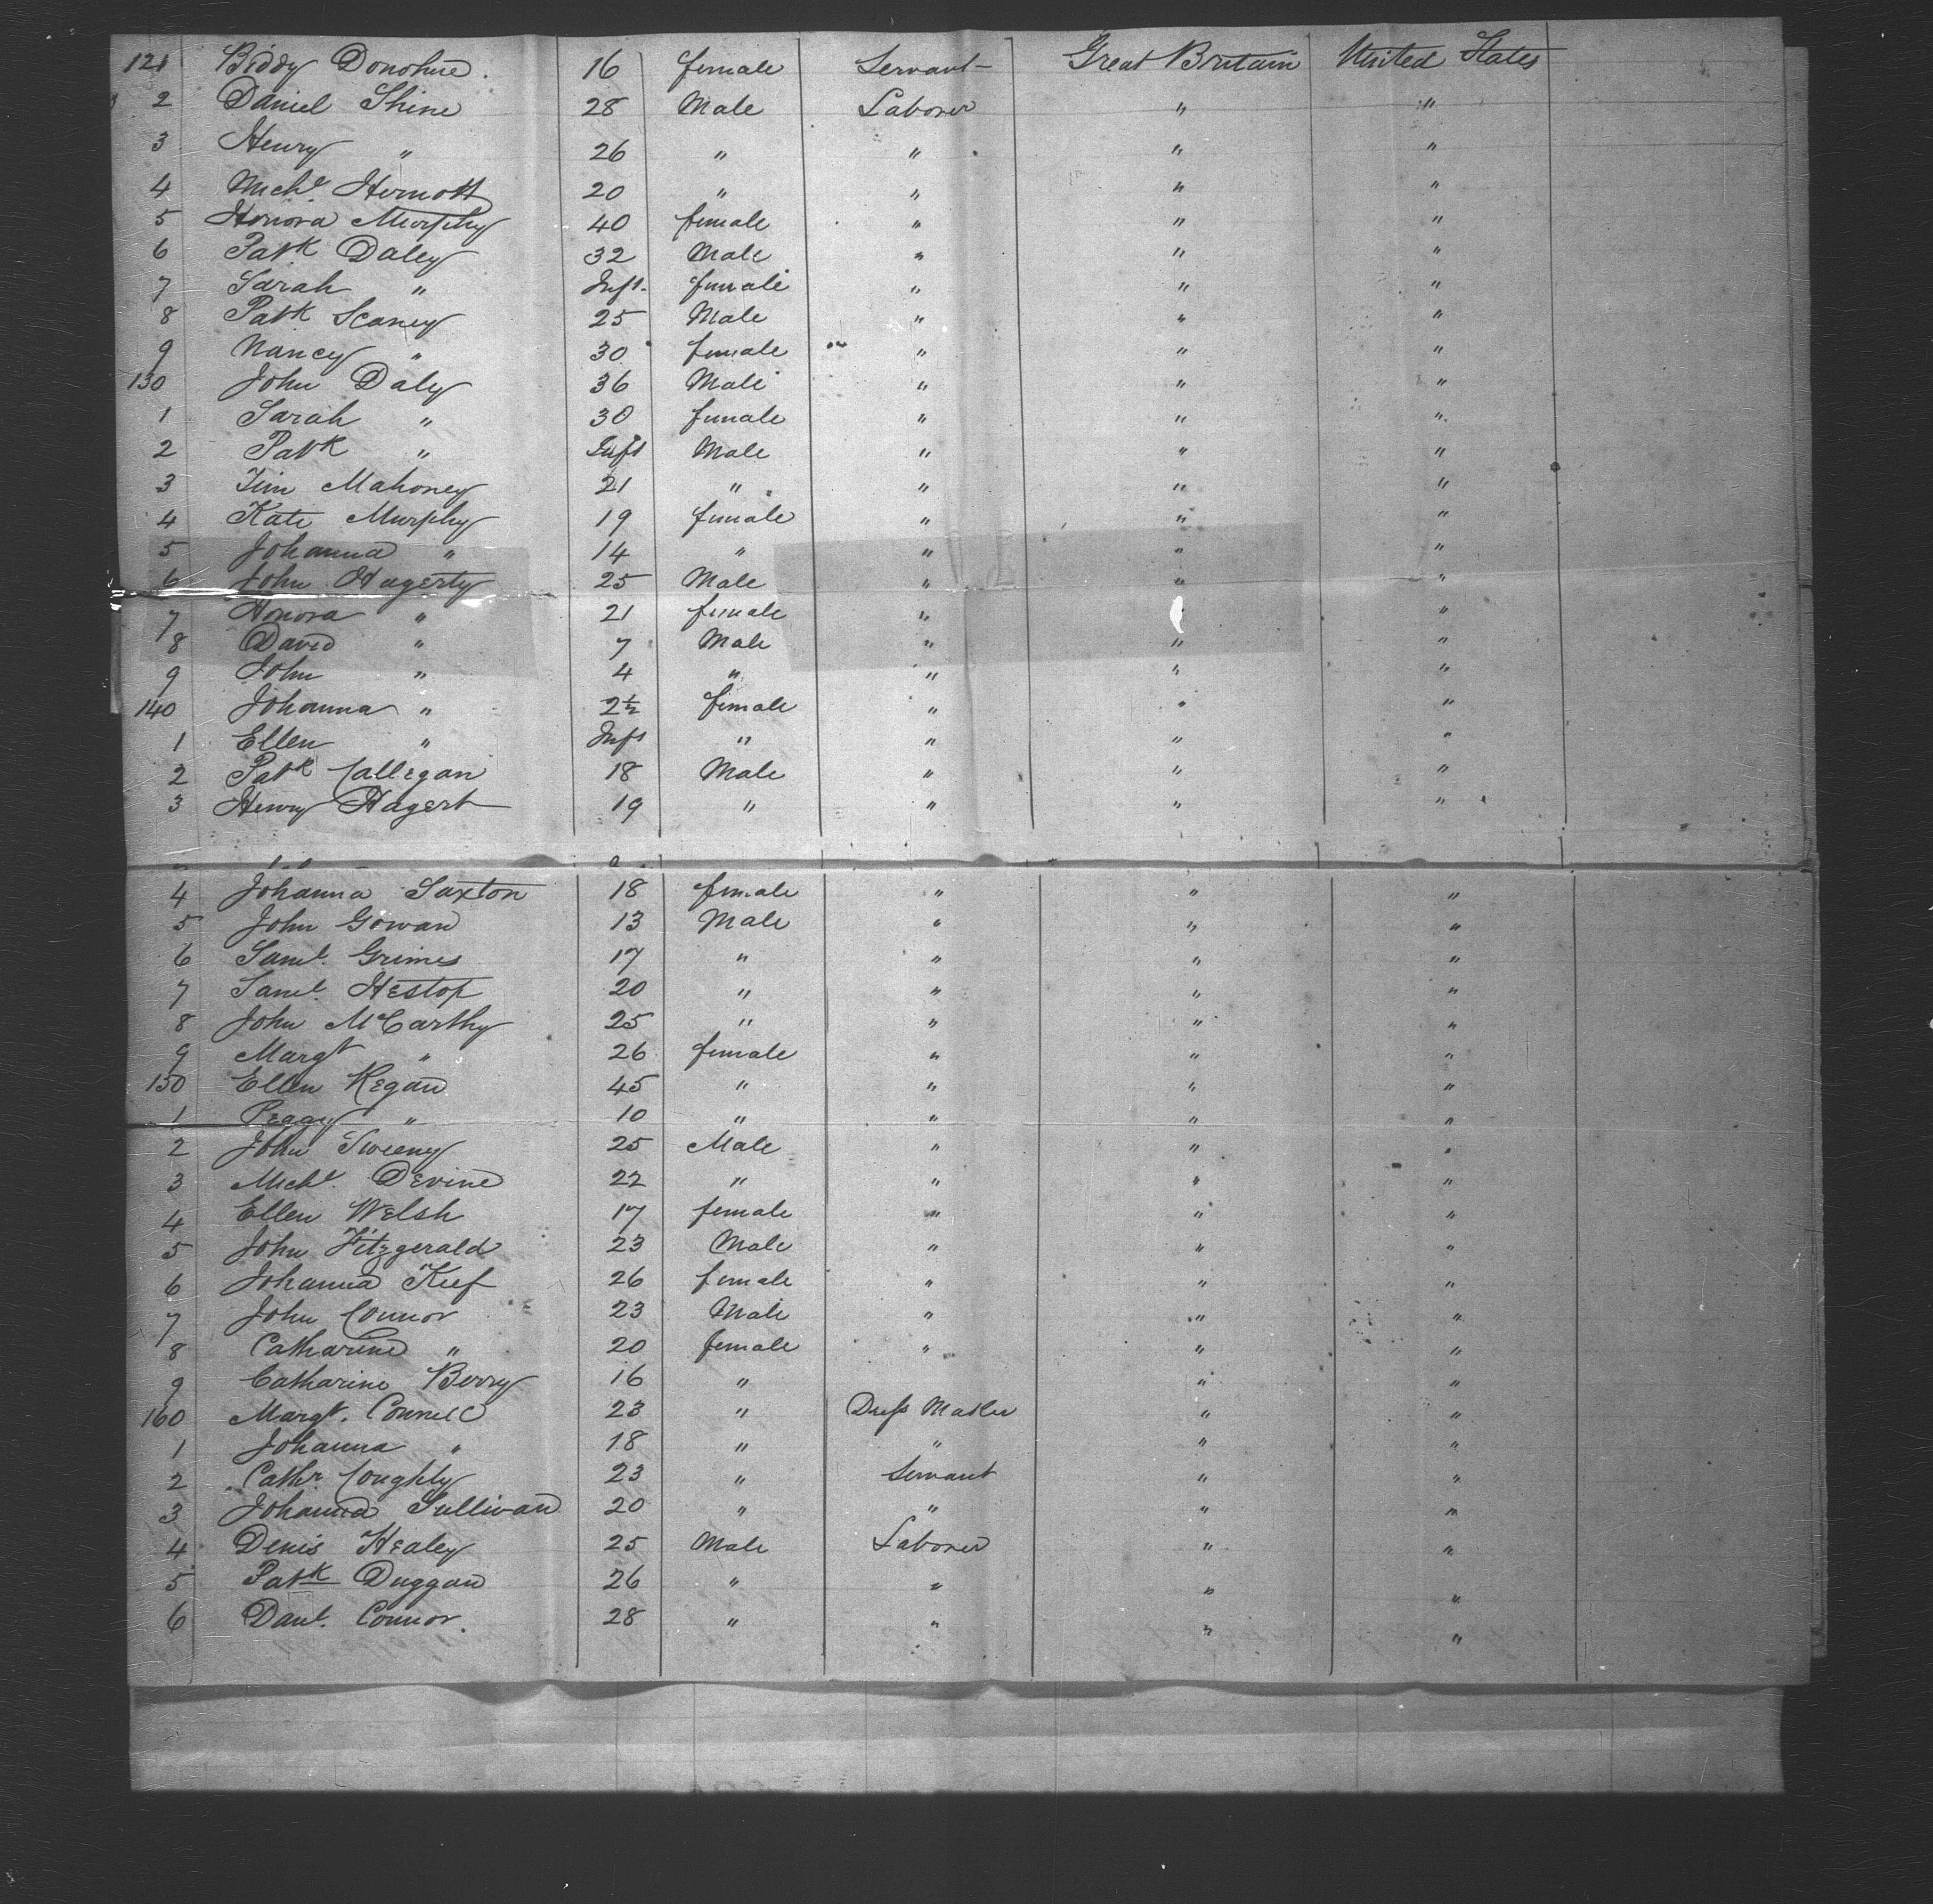 121 Biddy Donohue. 16 female Servant Great Britain United States
2 Daniel Shine 28 Male Laborer " "
3 Henry " 26 " " " "
4 Michl. 20 " " " "
5 Honora Murphy 40 female " " "
6 Patk Daley 32 Male " " "
7 Sarah " Inft. female " " "
8 Patk Scaney 25 Male " " "
9 Nancy " 30 female " " "
130 John Daly 36 Male " " "
1 Sarah " 30 female " " "
2 Patk " Inft Male " " "
3 Tim Mahoney 21 " " " "
4 Kate Murphy 19 female " " "
5 Johanna " 14 " " " "
6 John Hagerty 25 Male " " "
7 Honora " 21 female " "
8 David " 7 Male " " "
9 John " 4 " " " "
140 Johanna " 2½ female " " "
1 Ellen " Inft " " " "
2 Patk Callegan 18 Male " " "
3 Henry Hagert 19 " " " "
4 Johanna Saxton 18 female " " "
5 John Gowan 13 Male " " "
6 Saml. Grimes 17 " " " "
7 Saml. Hestop 20 " " " "
8 John McCarthy 25 " " " "
9 Margt " 26 female " " "
150 Ellen Kegan 45 " " " "
1 Peggy " 10 " " " "
2 John Sweeny 25 Male " " "
3 Michl. Devine 22 " " " "
4 Ellen Welsh 17 female " " "
5 John Fitzgerald 23 Male " " "
6 Johanna Keef 26 female " " "
7 John Connor 23 Male " " "
8 Catharine " 20 female " " "
9 Catharine Berry 16 " " "
160 Margt. Connell 23 " Dress Maker " "
1 Johanna " 18 " " " "
2 Cathr. Coughly 23 " Servant " "
3 Johanna Sullivan 20 " " " "
4 Denis Healey 25 Male Laborer " "
5 Patk Duggan 26 " " " "
6 Danl. Connor. 28 " " " "